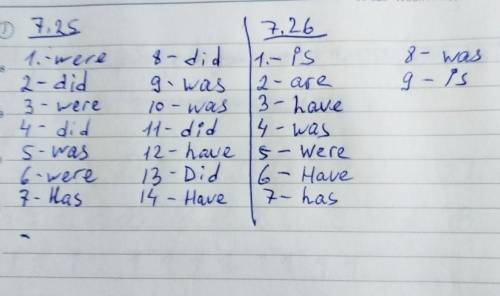 7.25
1.-were
2-did
3-were
4-did
5-was
6-were
7-Has
8-did
9-was
10-was
11-did
12-have
13-Did
14-Have
7.26
1.-is
2-are
3-have
4-was
5-Were
6-Have
7-has
8-was
9-is